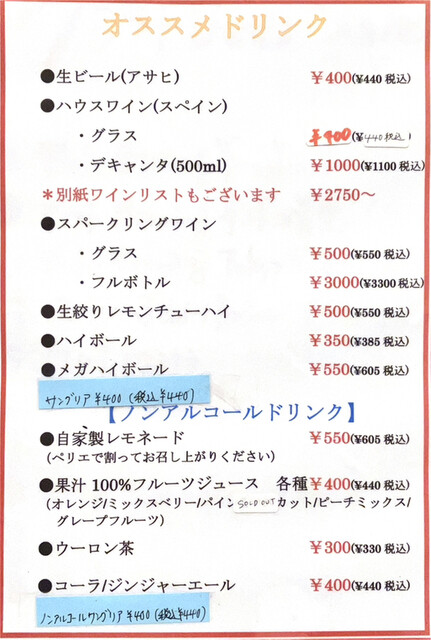 オススメドリンク
●生ビール(アサヒ) ￥400(¥440 税込)
●ハウスワイン(スペイン)
・グラス ￥400(¥440税込)
・デキャンタ(500ml) ￥1000(¥1100 税込)
＊別紙ワインリストもございます ￥2750～
●スパークリングワイン
・グラス ￥500(¥550 税込)
・フルボトル ￥3000(¥3300 税込)
●生絞りレモンチューハイ ￥500(¥550 税込)
●ハイボール ￥350(¥385 税込)
●メガハイボール ￥550(¥605 税込)
サングリア ¥400 (税込¥440)
【ノンアルコールドリンク】
●自家製レモネード ￥550(¥605 税込)
(ペリエで割ってお召し上がりください)
●果汁 100%フルーツジュース 各種￥400(¥440 税込)
(オレンジ/ミックスベリー/パイン SOLD OUT カット/ピーチミックス/
グレープフルーツ)
●ウーロン茶 ￥300(¥330 税込)
●コーラ/ジンジャーエール ￥400(¥440 税込)
ノンアルコールサングリア ¥400 (税込¥440)